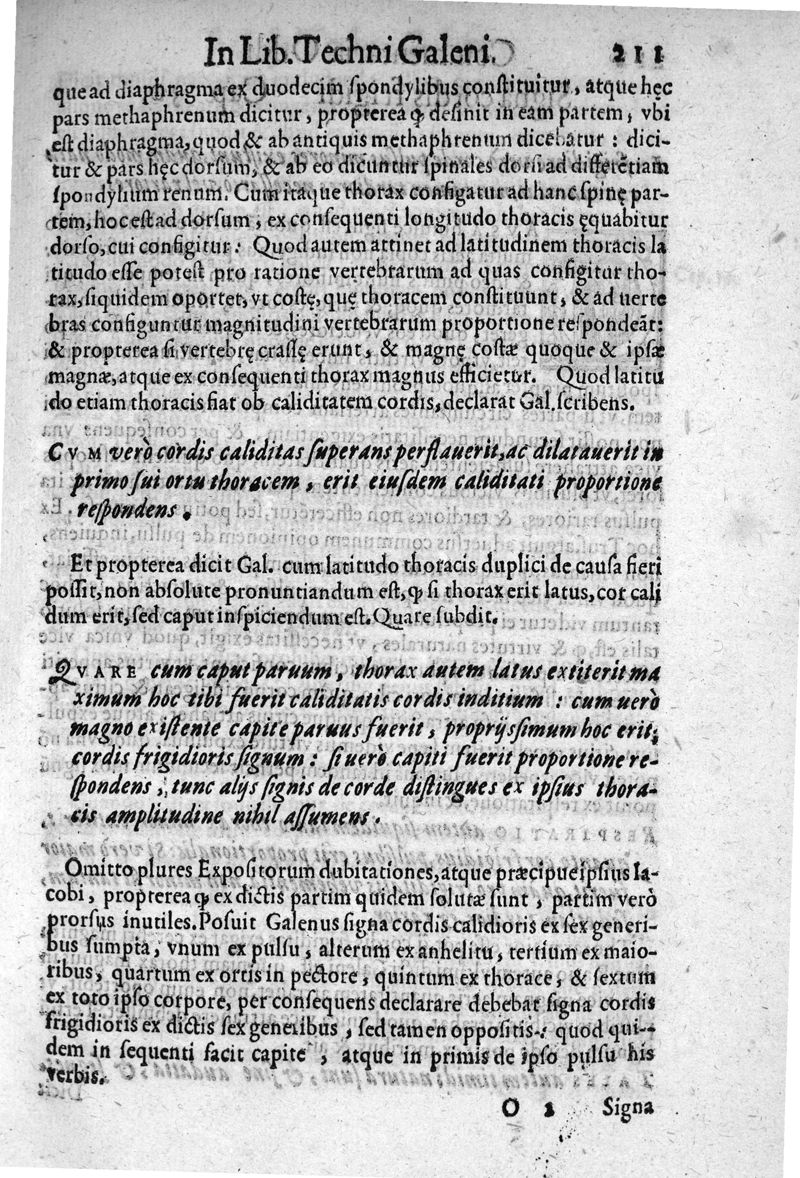 In Lib. Techni Galeni. 211
que ad diaphragma ex duodecim spondylibus constituitur, atque hęc
pars methaphrenum dicitur, propterea ꝙ desinit in eam partem, vbi
est diaphragma, quod & ab antiquis methaphrenum dicebatur: dici-
tur & pars hęc dorsum, & ab eo dicuntur spinales dorsi ad differẽtiam
spondylium renum. Cum itaque thorax configatur ad hanc spinę par-
tem, hoc est ad dorsum, ex consequenti longitudo thoracis ęquabitur
dorso, cui configitur: Quod autem attinet ad latitudinem thoracis la
titudo esse potest pro ratione vertebrarum ad quas configitur tho-
rax, siquidem oportet, vt costę, quę thoracem constituunt, & ad uerte
bras configuntur magnitudini vertebrarum proportione respondeãt:
& propterea si vertebrę crassę erunt, & magnę costæ quoque & ipsæ
magnæ, atque ex consequenti thorax magnus efficietur. Quod latitu
do etiam thoracis fiat ob caliditatem cordis, declarat Gal. scribens.
CVM verò cordis caliditas superans perflauerit, ac dilatauerit in
primo sui ortu thoracem, erit eiusdem caliditati proportione
respondens.
Et propterea dicit Gal. cum latitudo thoracis duplici de causa fieri
possit, non absolute pronuntiandum est, ꝙ si thorax erit latus, cor cali
dum erit, sed caput inspiciendum est. Quare subdit.
QVARE cum caput paruum, thorax autem latus extiterit ma
ximum hoc tibi fuerit caliditatis cordis inditium: cum uerò
magno existente capite paruus fuerit, proprijssimum hoc erit,
cordis frigidioris signum: si uerò capiti fuerit proportione re-
spondens, tunc alijs signis de corde distingues ex ipsius thora-
cis amplitudine nihil assumens.
Omitto plures Expositorum dubitationes, atque præcipue ipsius Ia-
cobi, propterea ꝙ ex dictis partim quidem solutæ sunt, partim verò
prorsus inutiles. Posuit Galenus signa cordis calidioris ex sex generi-
bus sumpta, vnum ex pulsu, alterum ex anhelitu, tertium ex maio-
ribus, quartum ex ortis in pectore, quintum ex thorace, & sextum
ex toto ipso corpore, per consequens declarare debebat signa cordis
frigidioris ex dictis sex generibus, sed tamen oppositis: quod qui-
dem in sequenti facit capite, atque in primis de ipso pulsu his
verbis.
O 2 Signa